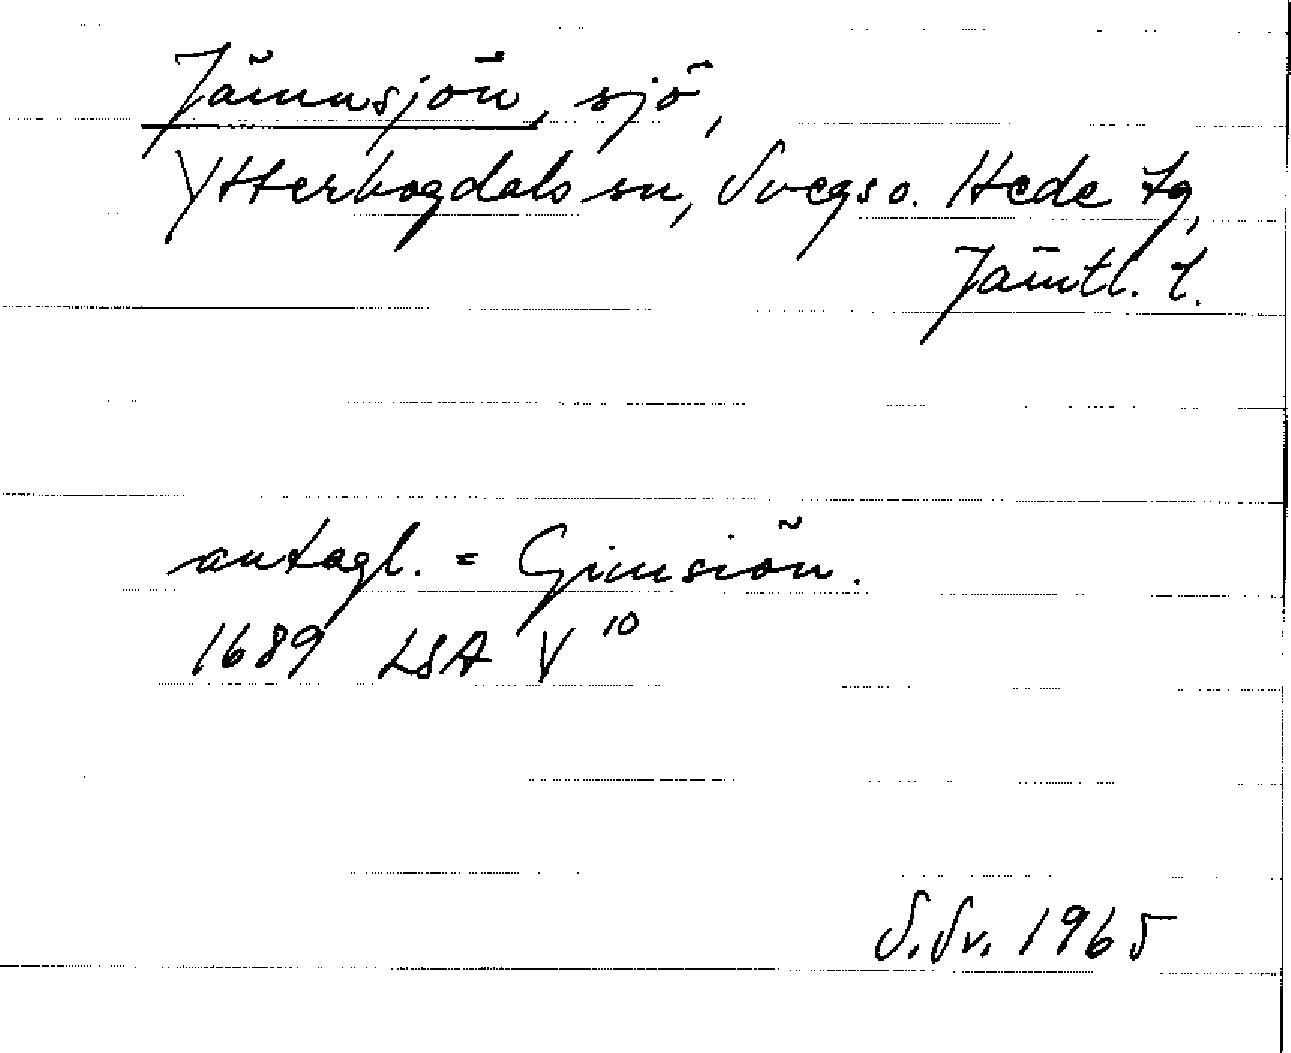 Jämnsjön, sjö,
Ytterhogdals sn, Svegs o. Hede tg,
Jämtl. l.
antagl. = Gimsiön.
1689 LSA V 10
S. Sv. 1965